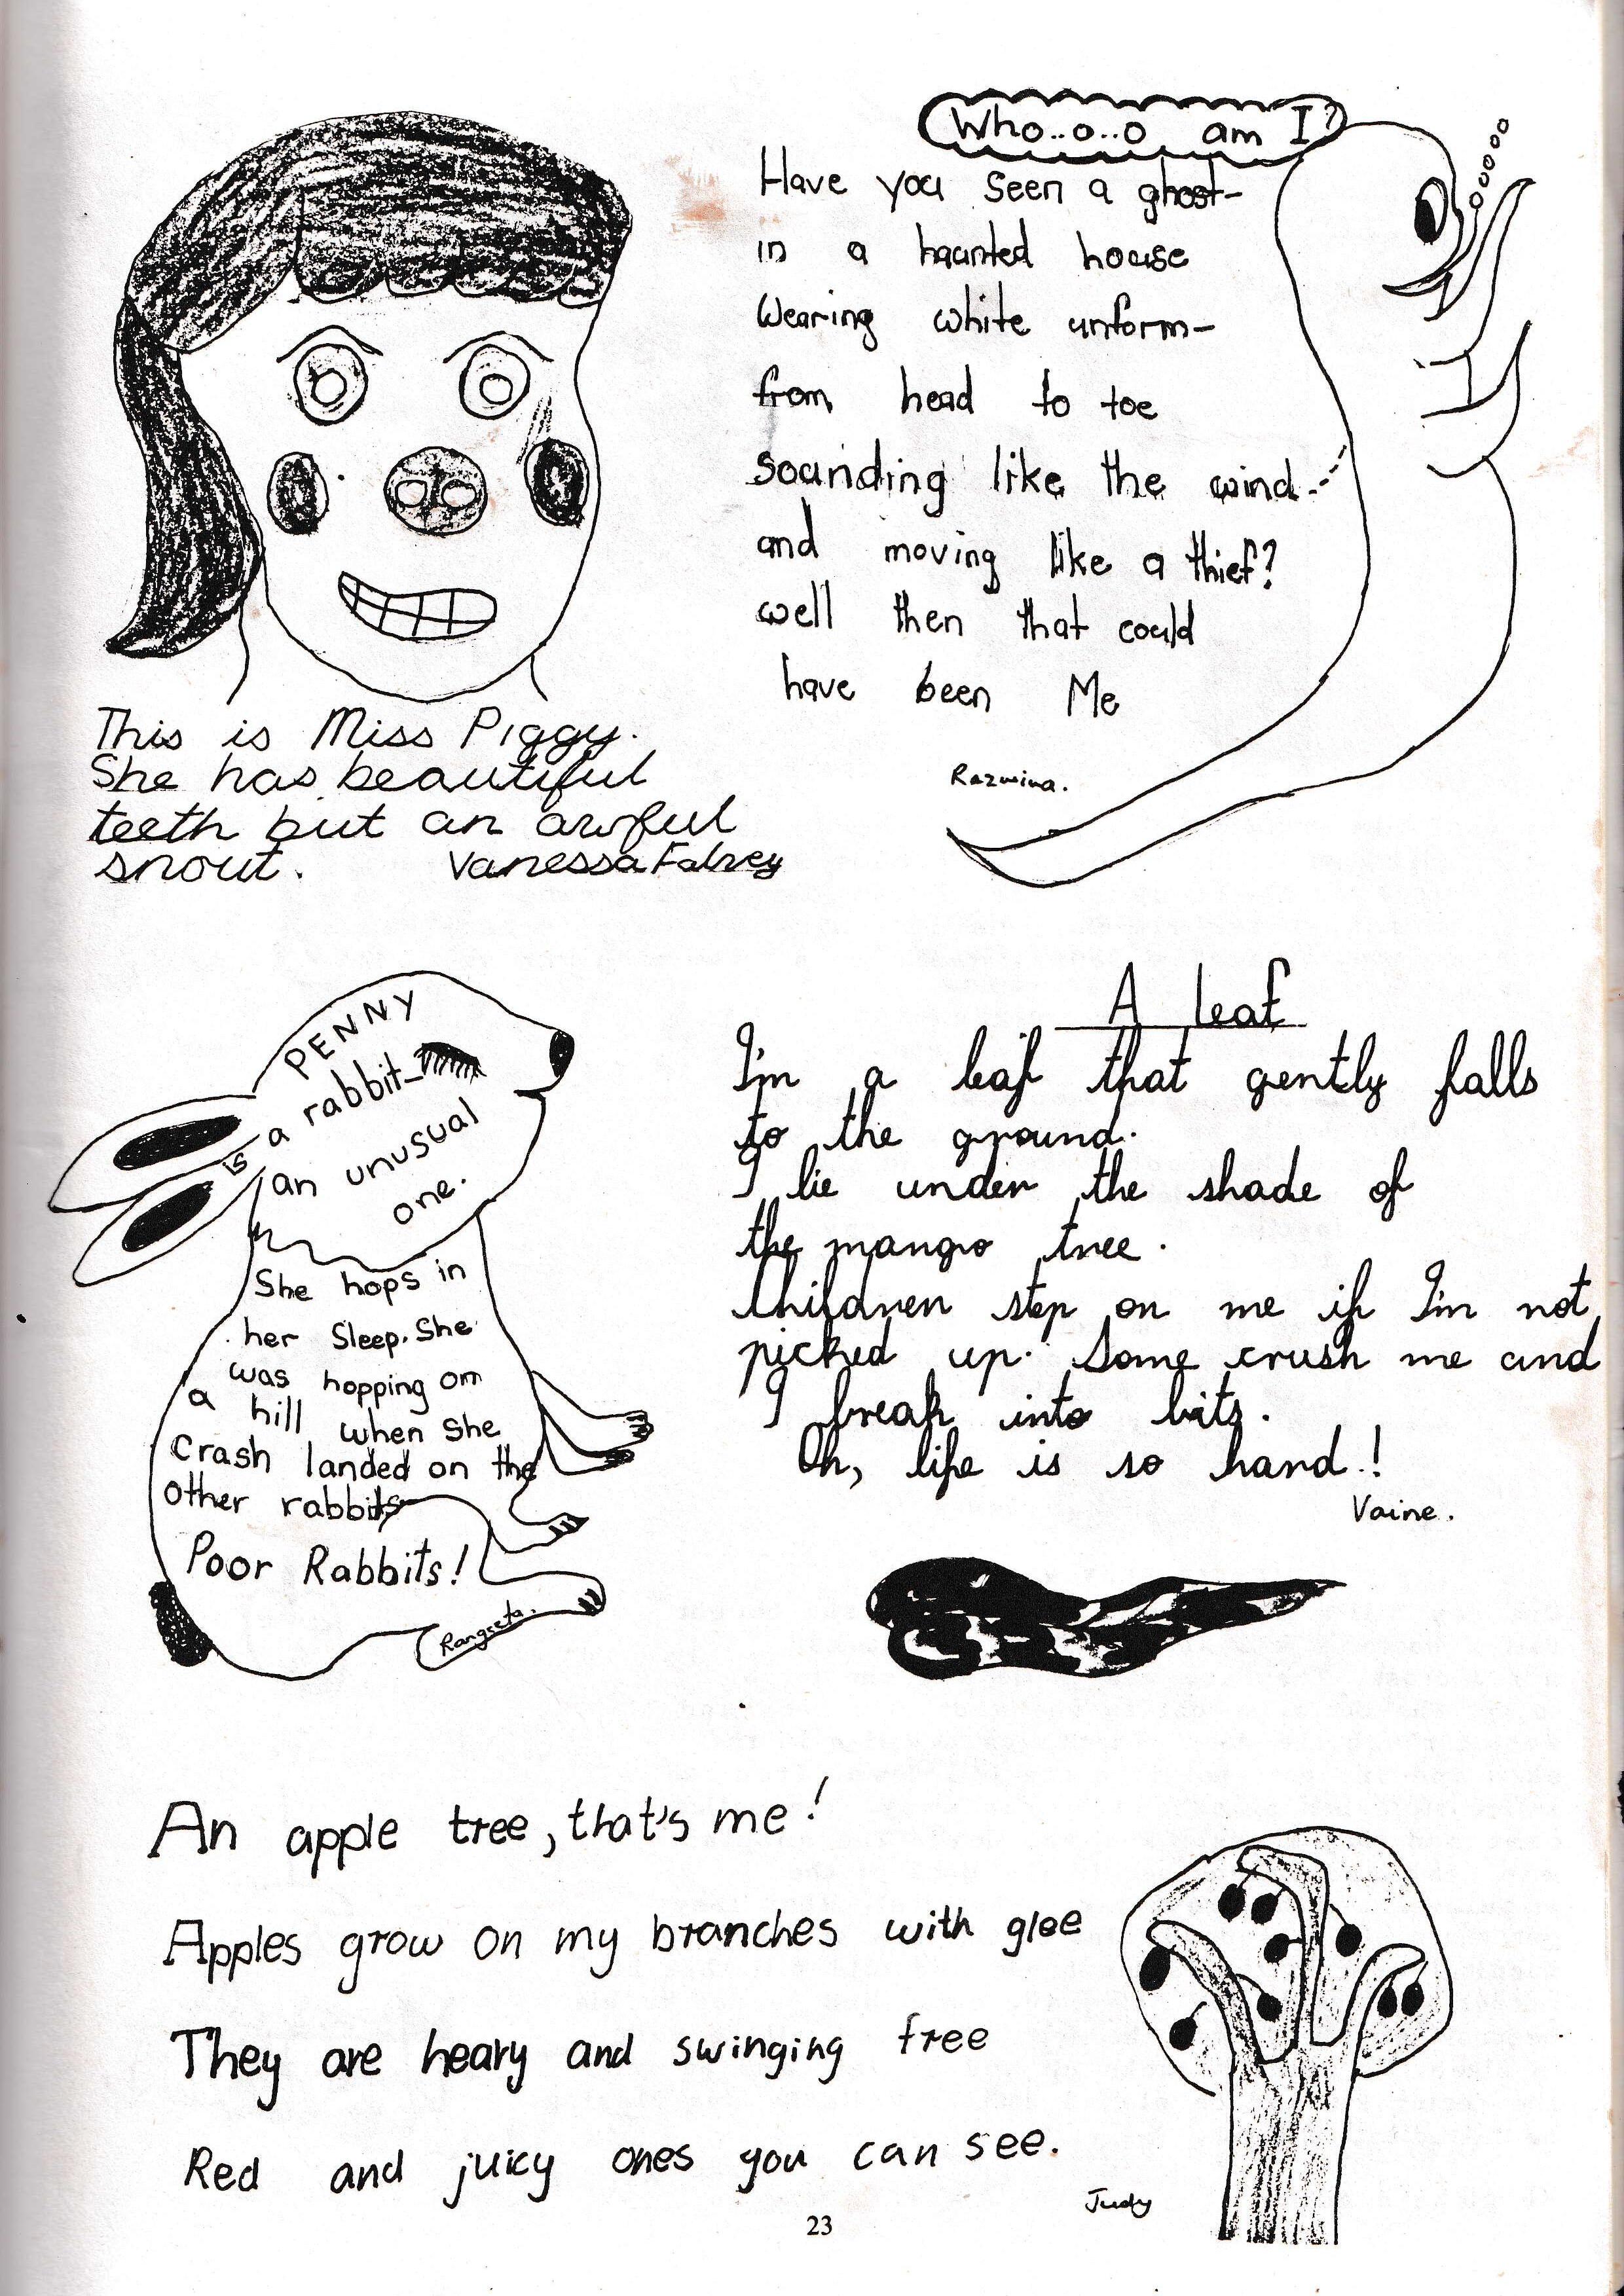 This is Miss Piggy.
She has beautiful
teeth but an awful
snout.
Vanessa Falvey
Who..o..o am I?
Have you seen a ghost-
in a haunted house
Wearing white unform-
from head to toe
sounding like the wind...
and moving like a thief?
well then that could
have been Me
Razmina.
PENNY
is a rabbit-
an unusual
one.
She hops in
her Sleep. She
was hopping on
a hill when she
Crash landed on the
other rabbits
Poor Rabbits!
Rangseta.
A leaf
I'm a leaf that gently falls
to the ground.
I lie under the shade of
the mango tree.
Children step on me if I'm not
picked up. Some crush me and
I break into bits.
Oh, life is so hard.!
Vaine.
An apple tree, that's me!
Apples grow on my branches with glee
They are heavy and swinging free
Red and juicy ones you can see.
Judy
23